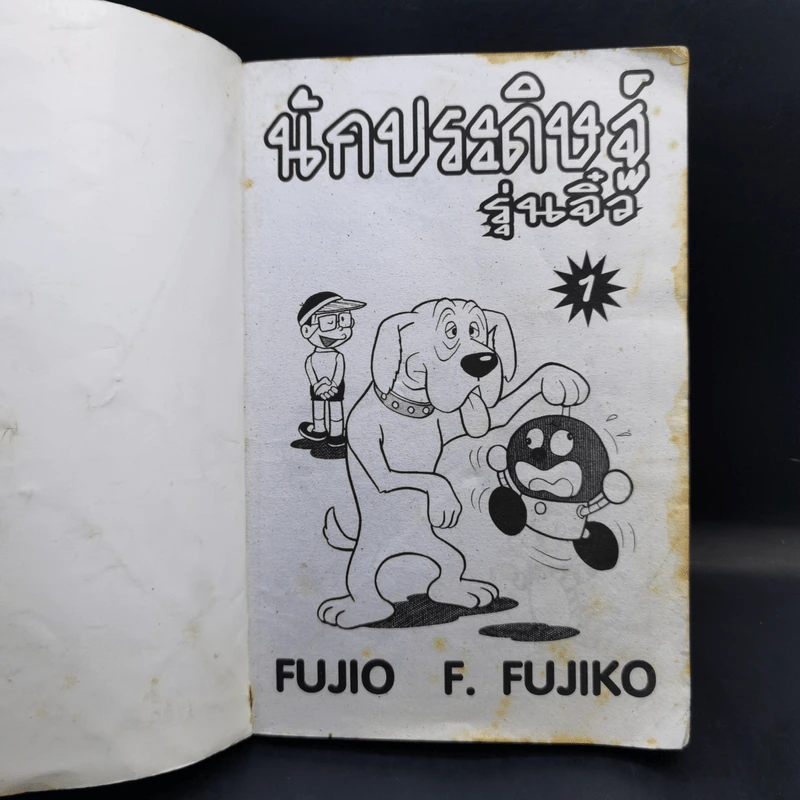 นักประดิษฐ์
รุ่นจิ๋ว
1
FUJIO F. FUJIKO